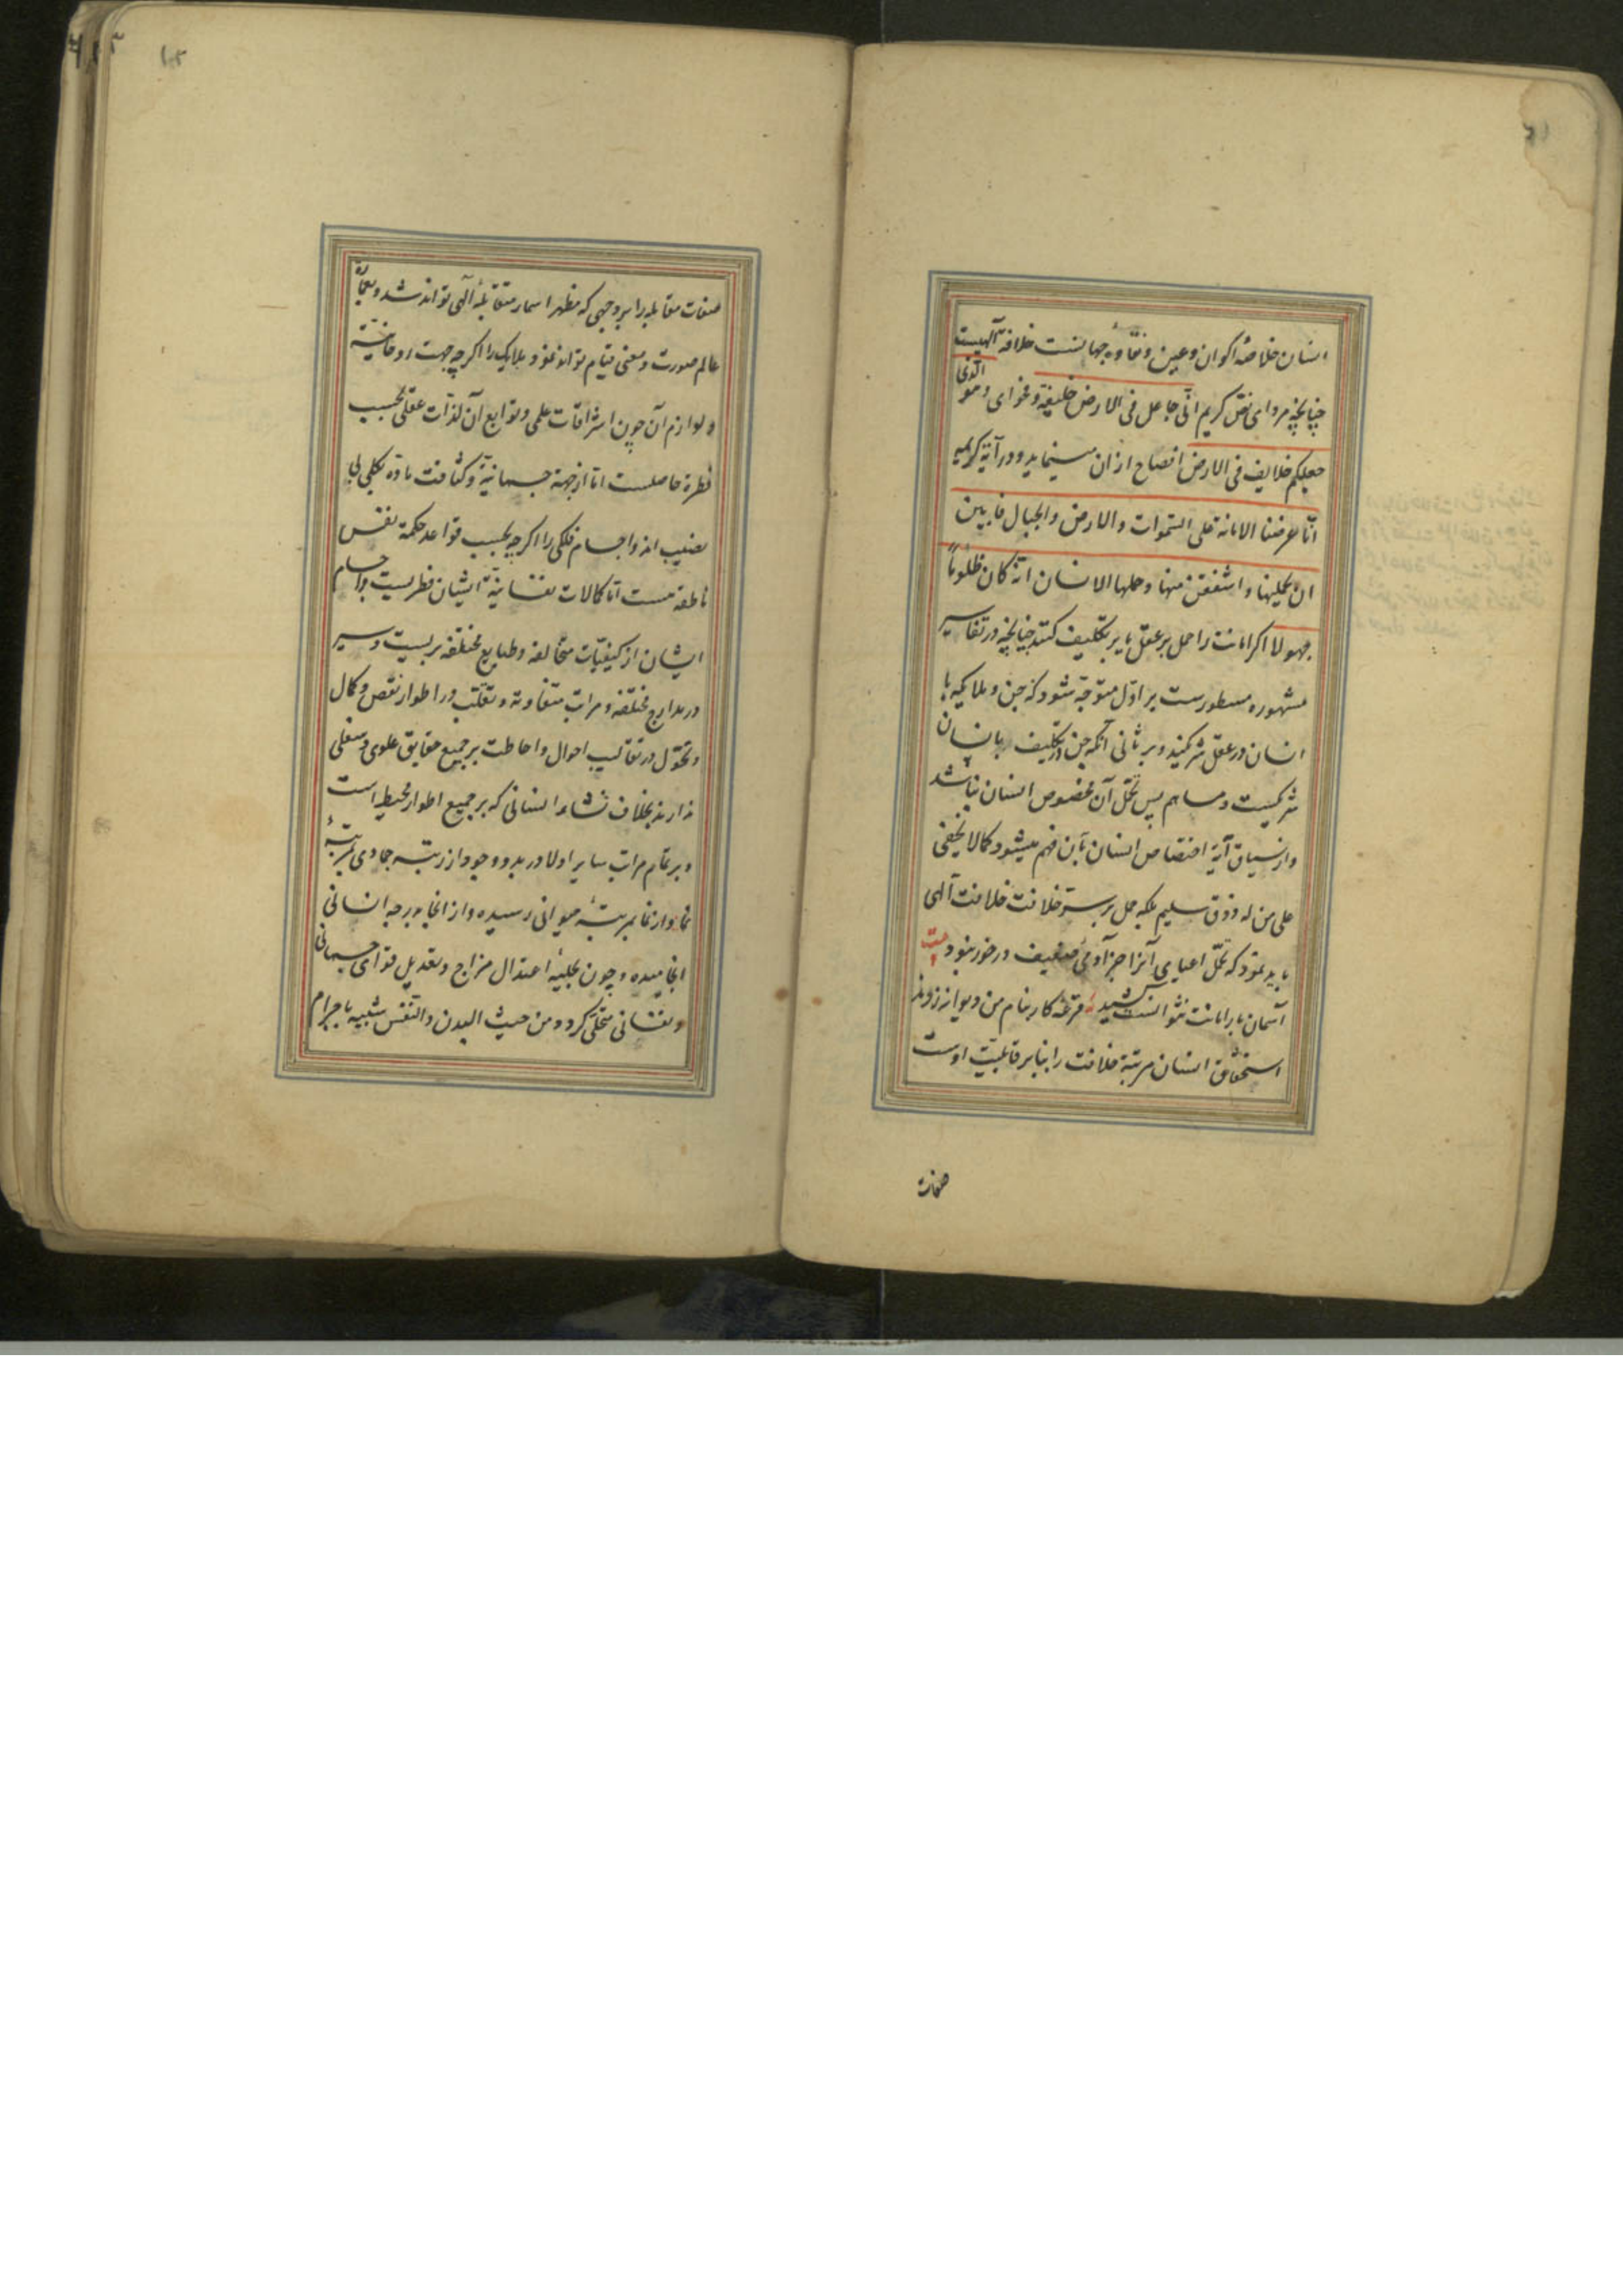 انسان خلاصهٔ اکوان و عین و نقاوهٔ جهانست خلافة آلهیست
چنانچه مرداى نص کریم انّی جاعل فی الارض خلیفة و فحوای و هو الّذی
جعلکم خلایف فی الارض افصاح از ان مینماید و در آیة کریمه
انّا عرضنا الامانة علی السّموات والارض والجبال فابین
ان یحملنها و اشفقن منها و حملها الانسان انّه کان ظلوماً
جهولا اکر امانت را حمل بر عقل یا بر تکلیف کنند چنانچه در تفاسیر
مشهوره مسطورست بر اوّل متوجّه شود که جن و ملایکه با
انسان در عقل شرکیند و بر ثانی آنکه جن در تکلیف با انسان
شرکیست و مساهم پس تحمّل آن مخصوص انسان نباشد
و از سیاق آیة اختصاص انسان بآن فهم میشود کما لا یخفی
علی من له ذوق سلیم بلکه حمل بر سرّ خلافت خلافت آلهی
باید نمود که تحمّل اعبای آنرا جز آدمی ضعیف در خور نبود بیت
آسمان بار امانت نتوانست کشید قرعه کار بنام من دیوانه زدند
استحقاق انسان مرتبة خلافت را بنابر قابلیّت اوست
صفات
صفات مقابله را بر وجهی که مظهر اسمار متقابلهٔ آلهی تواند شد و بعمارة
عالم صورت و معنی قیام تواند نمود و ملایک را اکرچه جهت روحانیّة
و لوازم آن چون اشراقات علمی و توابع آن لذّات عقلی بحسب
فطرة حاصلست امّا از جهة جسمانیّة و کثافت مادّه بکلی بی
نصیب اند و اجسام فلکی را اکرچه بحسب قواعد حکمة نفس
ناطقه هست امّا کمالات نفسانیّة ایشان فطریست و اجسام
ایشان از کیفیّات متخالفه و طبایع مختلفه بریست و سیر
در مدارج مختلفه و مراتب متفاوته و تقلّب در اطوار نقص و کمال
و تحوّل در تقالیب احوال و احاطت بر جمیع حقایق علوی و سفلی
ندارند بخلاف نشاء انسانی که بر جمیع اطوار محیط است
و بر تمام مراتب سایر اولا در بدو وجود از رتبه جمادی بمرتبهٔ
نما و از نما بمرتبهٔ حیوانی رسیده و از انجا بدرجه انسانی
انجامیده و چون بحلیهٔ اعتدال مزاج و تعدیل قوای جسمانی
و نفسانی متحلّی کرد و من حیث البدن والنّفس شبیه باجرام